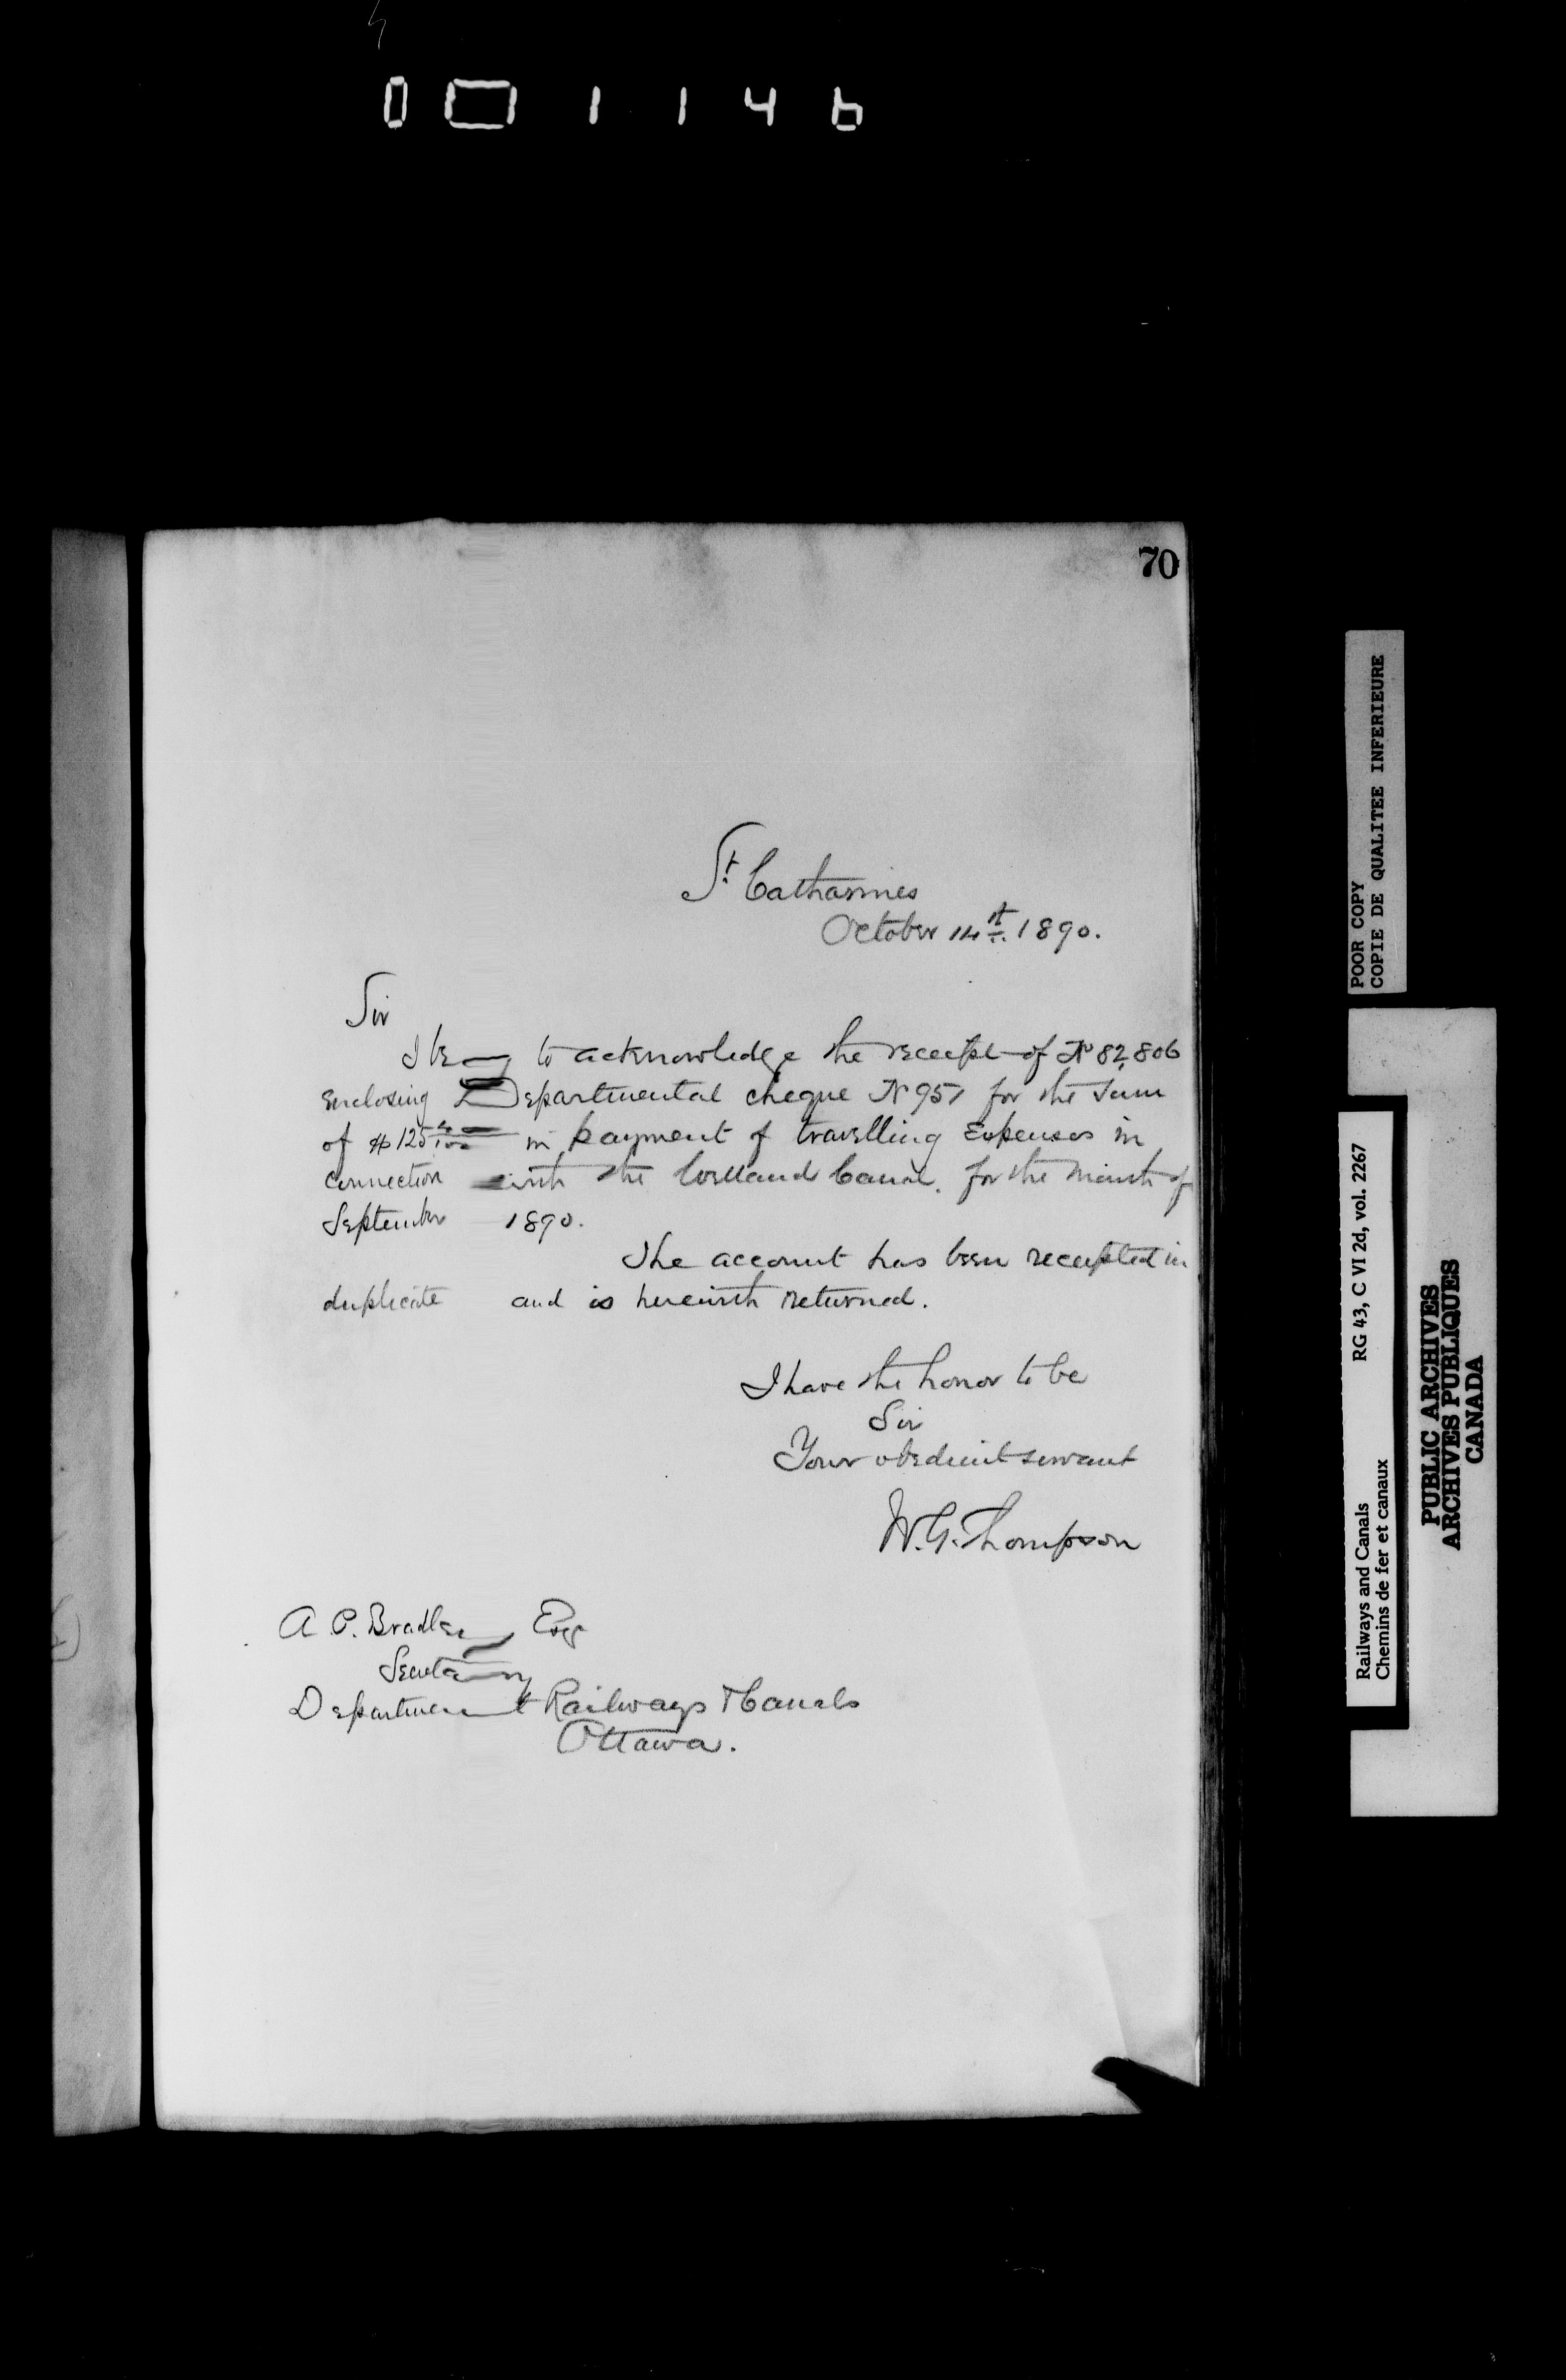 0 0 1 1 4 6
70
St. Catharines
October 14th 1890.
Sir
I beg to acknowledge the receipt of No 82,806
enclosing Departmental cheque No 951 for the sum
of $125 in payment of travelling Expenses in
connection with the Welland Canal, for the Month of
September 1890.
The account has been receipted in
duplicate and is herewith returned.
I have the honor to be
Sir
Your obedient servant
W.G. Thompson
A P. Bradley Esq
Secretary
Department Railways & Canals
Ottawa.
POOR COPY
COPIE DE QUALITEE INFERIEURE
Railways and Canals RG 43, C VI 2d, vol. 2267
Chemins de fer et canaux
PUBLIC ARCHIVES
ARCHIVES PUBLIQUES
CANADA